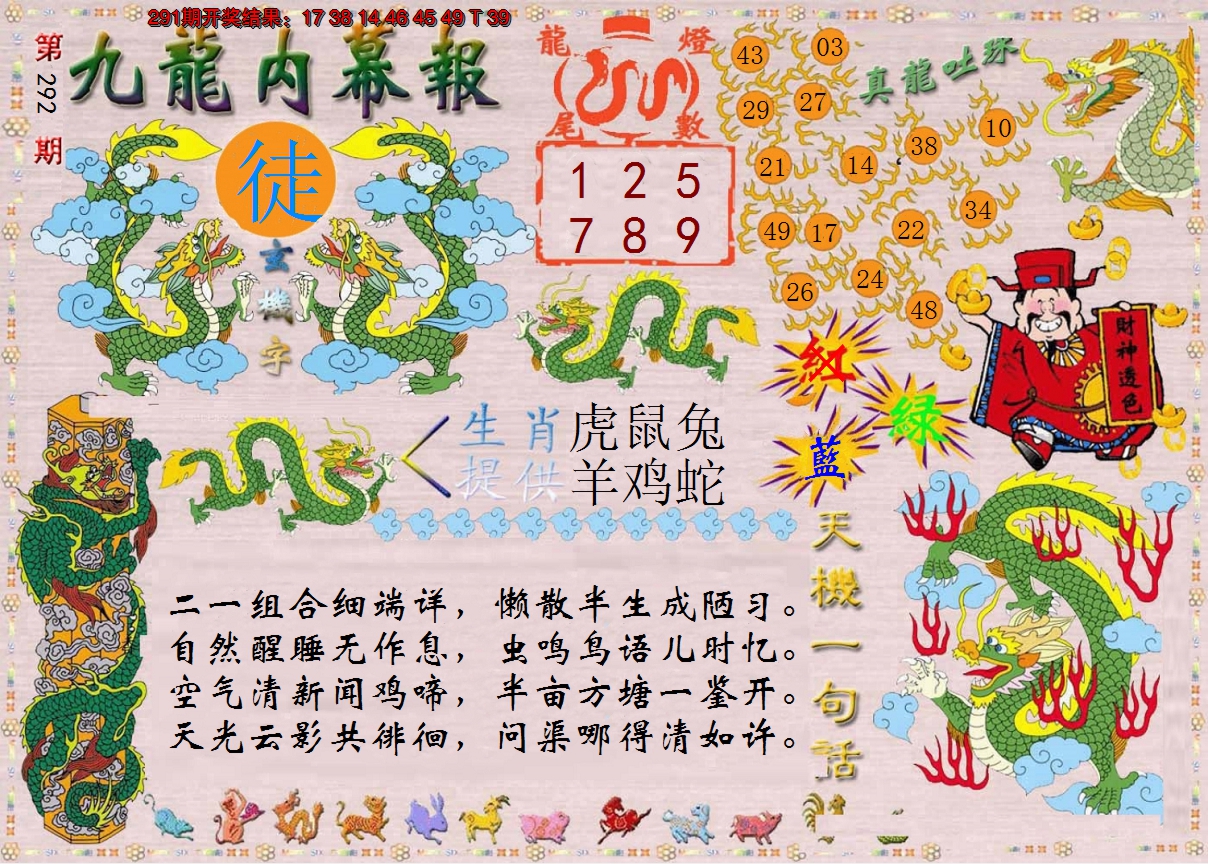 291期开奖结果：17 38 14 46 45 49 T 39
第292期
九龍内幕報
徒
玄機字
龍燈尾數
1 2 5
7 8 9
真龍吐珠
43 03
29 27
21 14 38 10
49 17 22 34
26 24 48
紅
綠
藍
財神透色
生肖提供
虎鼠兔
羊鸡蛇
天機一句話
二一组合细端详，懒散半生成陋习。
自然醒睡无作息，虫鸣鸟语儿时忆。
空气清新闻鸡啼，半亩方塘一鉴开。
天光云影共徘徊，问渠哪得清如许。